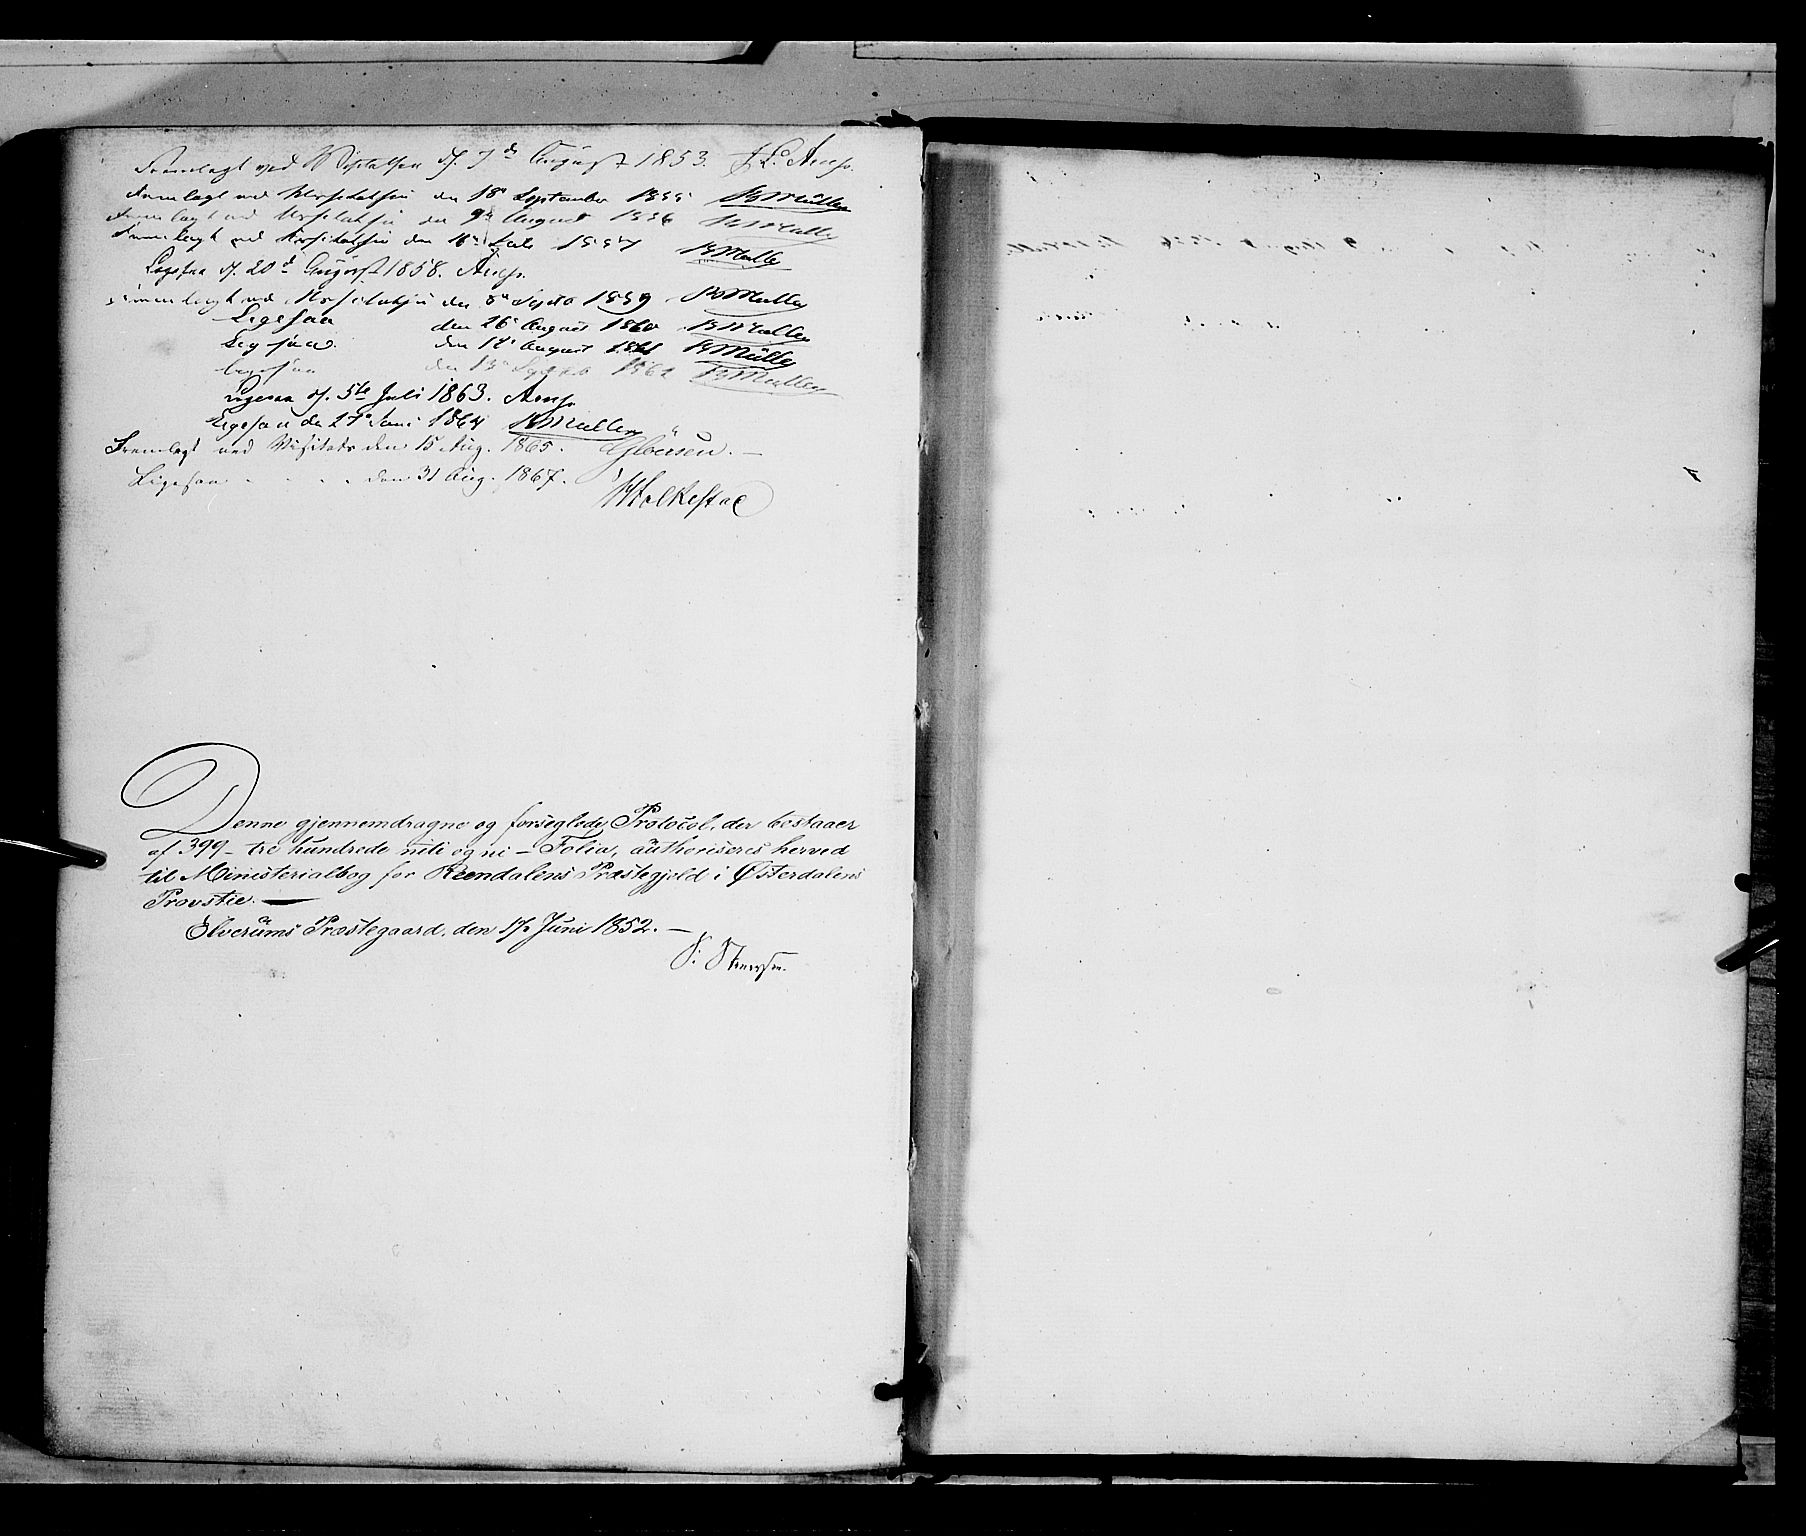 Fremlagt ved Visitatsen d. 7d August 1853. J L. Arup.
Fremlagt ved Visitatsen den 18e September 1855 B Müller
Fremlagt ved Visitatsen den 9de August 1856 B Müller
Fremlagt ved Visitatsen den 16e Juli 1857 B Müller
Ligesaa d. 20d August 1858. Arup.
Fremlagt ved Visitatsen den 8e Septb 1859 B Müller
Ligesaa den 26e August 1860 B Müller
Ligesaa den 18e August 1861 B Müller
Ligesaa den 13e Septb 1862 B Müller
Ligesaa d. 5te Juli 1863. Arup.
Ligesaa den 27e Juni 1864 B Müller
Fremlagt ved Visitats den 15 Aug. 1865. Gløersen. —
Ligesaa - - - - den 31 Aug. 1867.
H Folkestad
Denne gjennemdragne og forseglede Protocol, der bestaaer
af 399 - tre hundrede niti og ni - Folia, authoriseres herved
til Ministerialbog for Reendalens Præstegjeld i Østerdalens
Provstie. —
Elverums Præstegaard, den 17 Juni 1852. —